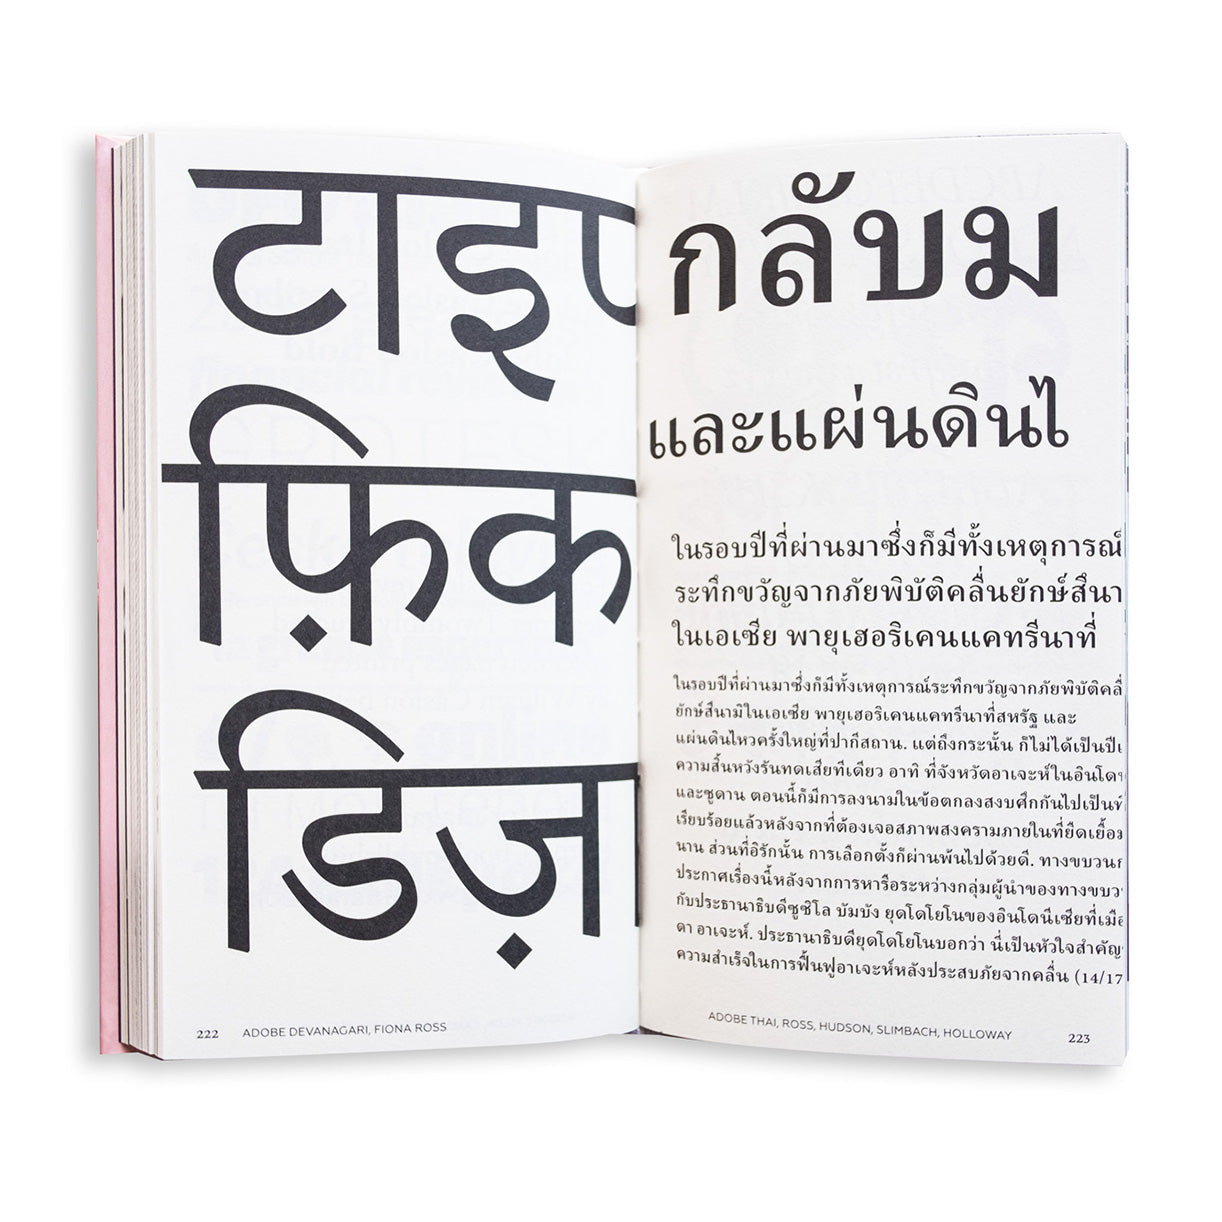 टाइप
फ़िक
डिज़
222 ADOBE DEVANAGARI, FIONA ROSS
กลับม
และแผ่นดินไ
ในรอบปีที่ผ่านมาซึ่งก็มีทั้งเหตุการณ์
ระทึกขวัญจากภัยพิบัติคลื่นยักษ์สึนา
ในเอเซีย พายุเฮอริเคนแคทรีนาที่
ในรอบปีที่ผ่านมาซึ่งก็มีทั้งเหตุการณ์ระทึกขวัญจากภัยพิบัติคลื่
ยักษ์สึนามิในเอเซีย พายุเฮอริเคนแคทรีนาที่สหรัฐ และ
แผ่นดินไหวครั้งใหญ่ที่ปากีสถาน. แต่ถึงกระนั้น ก็ไม่ได้เป็นปีแ
ความสิ้นหวังรันทดเสียทีเดียว อาทิ ที่จังหวัดอาเจะห์ในอินโด
และซูดาน ตอนนี้ก็มีการลงนามในข้อตกลงสงบศึกกันไปเป็นที่
เรียบร้อยแล้วหลังจากที่ต้องเจอสภาพสงครามภายในที่ยืดเยื้อม
นาน ส่วนที่อิรักนั้น การเลือกตั้งก็ผ่านพ้นไปด้วยดี. ทางขบวนก
ประกาศเรื่องนี้หลังจากการหารือระหว่างกลุ่มผู้นำของทางขบว
กับประธานาธิบดีซูซิโล บัมบัง ยุดโดโยโนของอินโดนีเซียที่เมือ
ดา อาเจะห์. ประธานาธิบดียุดโดโยโนบอกว่า นี่เป็นหัวใจสำคัญ
ความสำเร็จในการฟื้นฟูอาเจะห์หลังประสบภัยจากคลื่น (14/17
ADOBE THAI, ROSS, HUDSON, SLIMBACH, HOLLOWAY 223